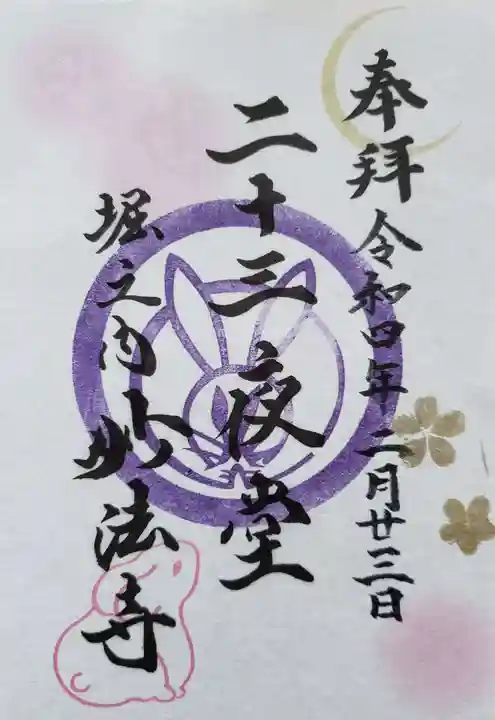 奉拜 令和四年 二月廿三日
二十三夜堂
堀之内 妙法寺